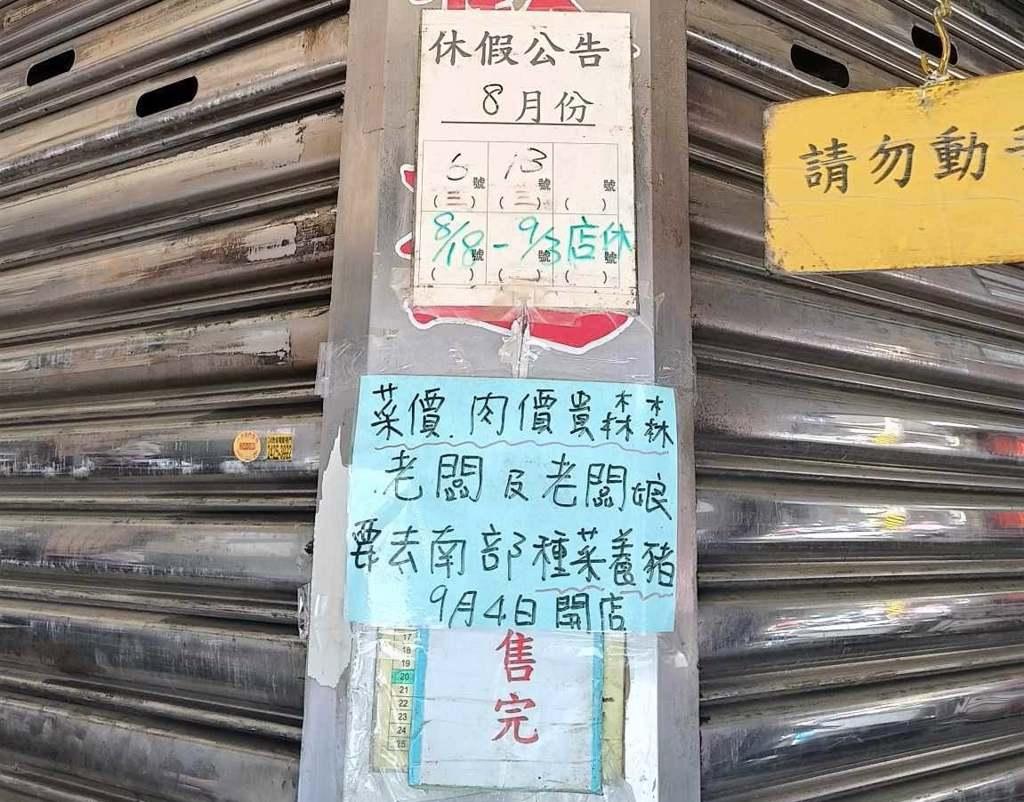 休假公告
8月份
6號 13號 號
(三) (三) ( )
8/18號 - 9/3號 店休號
( ) ( ) ( )
請勿動
菜價.肉價貴森森
老闆及老闆娘
要去南部種菜養豬
9月4日開店
售完
17
18
19
20
21
22
23
24
25